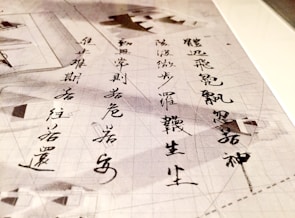 體迅飛鳧飄忽若神
陵波微步羅韈生尘
動無常則若危若安
進止難期若往若還